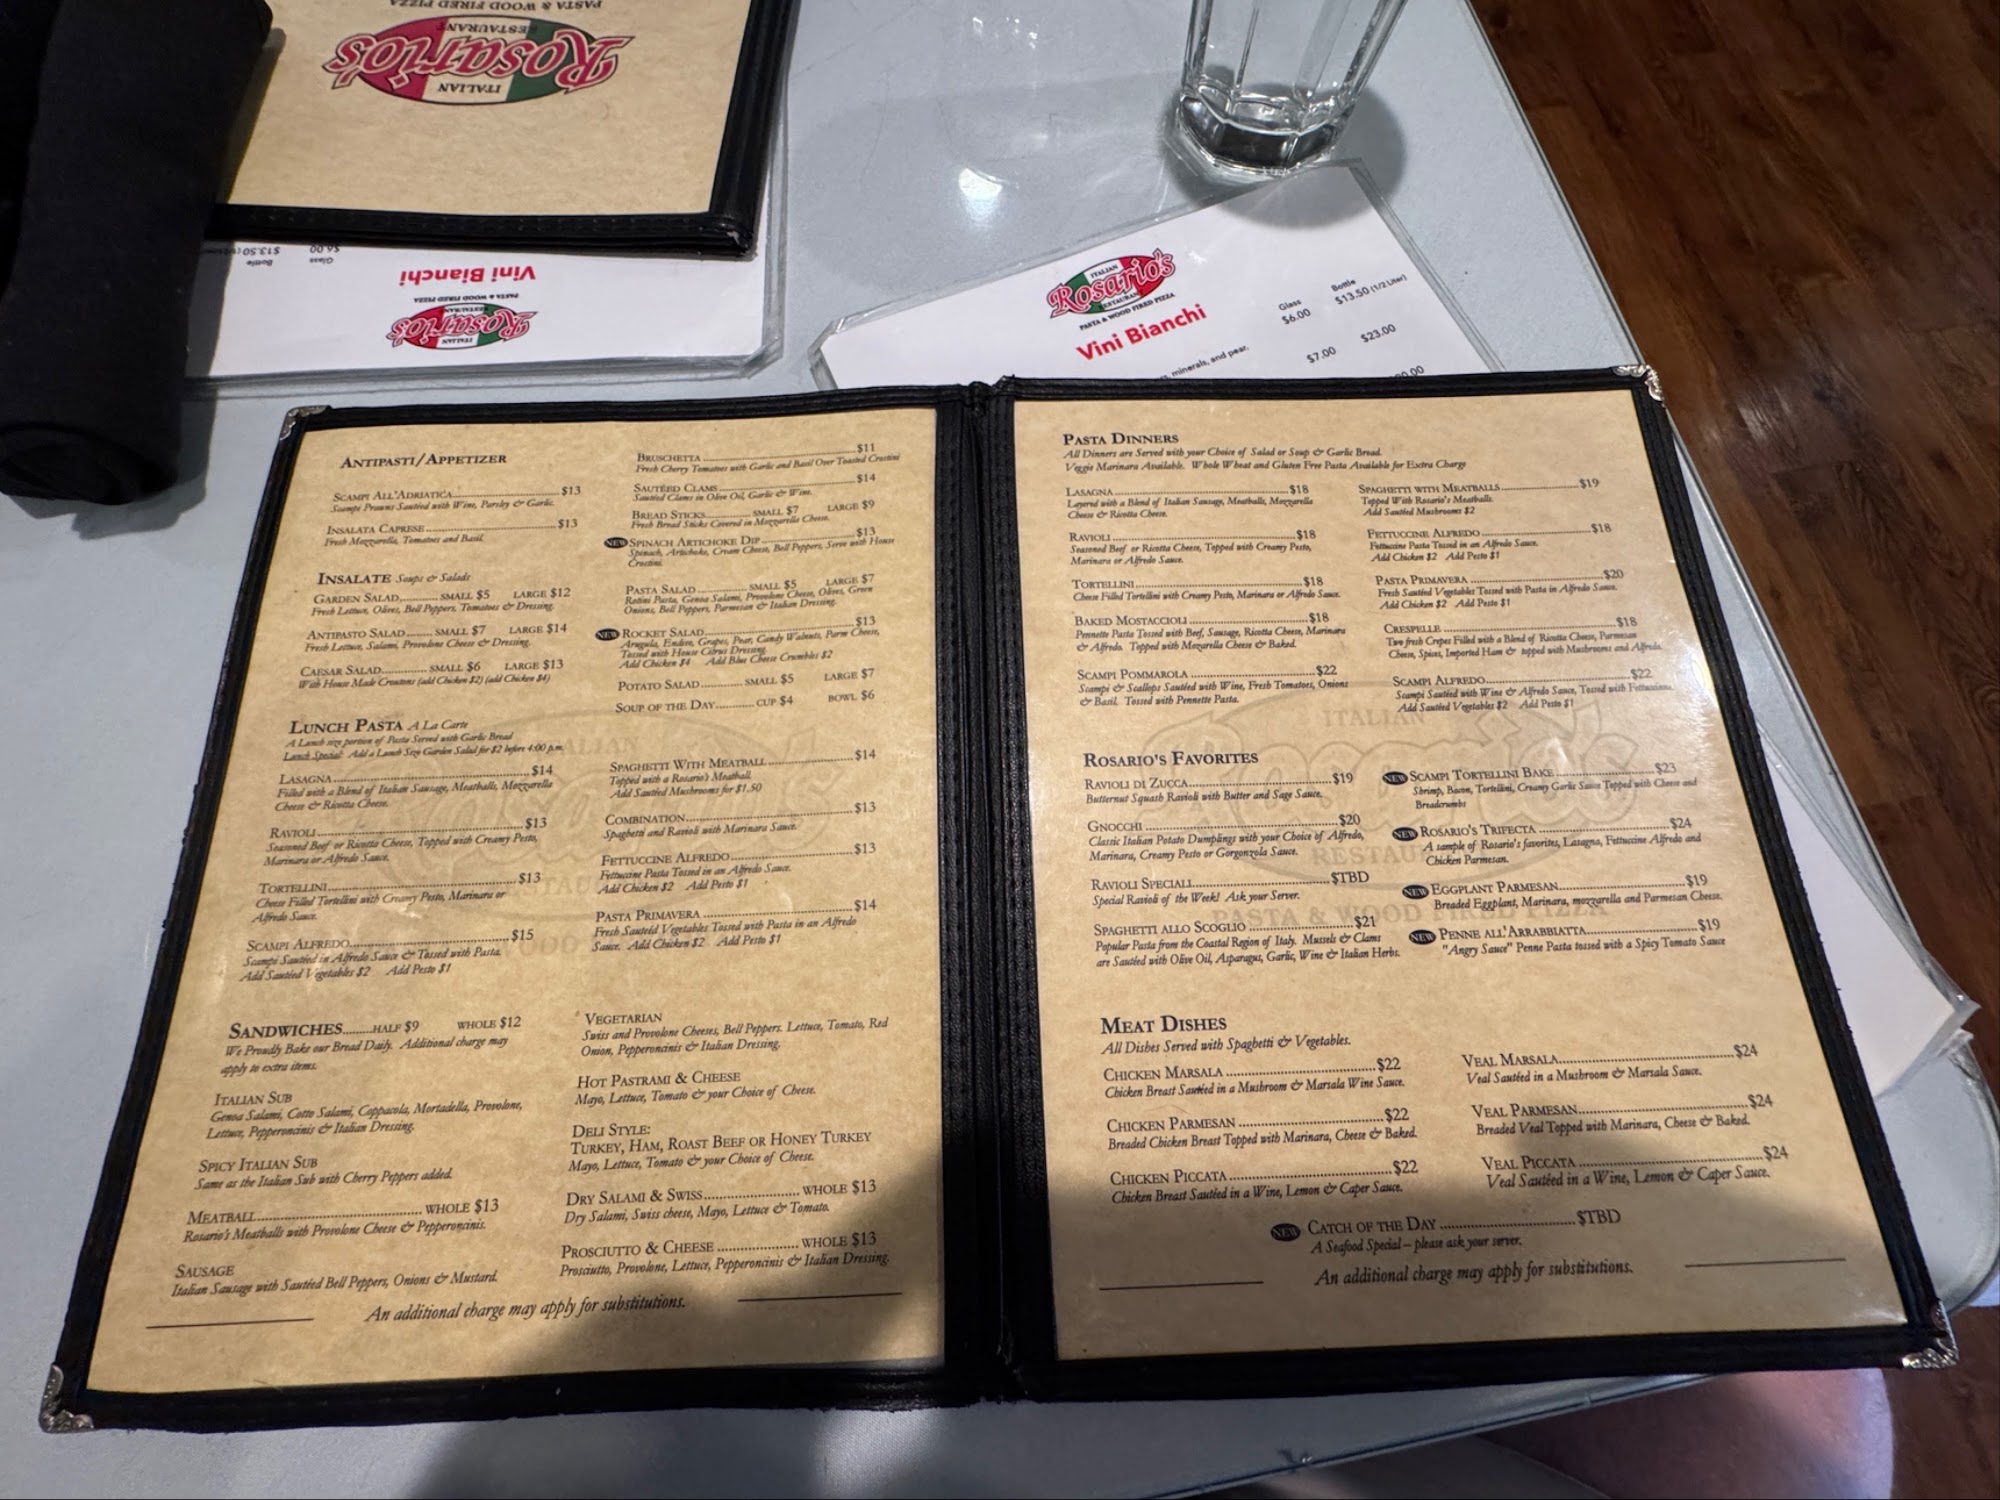 PASTA & WOOD FIRED PIZZA
RESTAURANT
Rosario's
ITALIAN
$13.50
$6.00
Bottle
Glass
Vini Bianchi
PASTA & WOOD FIRED PIZZA
RESTAURANT
Rosario's
ITALIAN
ITALIAN
Rosario's
RESTAURANT
PASTA & WOOD FIRED PIZZA
Vini Bianchi
Glass Bottle
$6.00 $13.50 (1/2 Liter)
minerals, and pear.
$7.00 $23.00
ANTIPASTI/APPETIZER
SCAMPI ALL'ADRIATICA $13
Scampi Prawns Sautéed with Wine, Parsley & Garlic.
INSALATA CAPRESE $13
Fresh Mozzarella, Tomatoes and Basil.
BRUSCHETTA $11
Fresh Cherry Tomatoes with Garlic and Basil Over Toasted Crostini
SAUTÉED CLAMS $14
Sautéed Clams in Olive Oil, Garlic & Wine.
BREAD STICKS SMALL $7 LARGE $9
Fresh Bread Sticks Covered in Mozzarella Cheese.
NEW SPINACH ARTICHOKE DIP $13
Spinach, Artichoke, Cream Cheese, Bell Peppers, Serve with House
Crostini.
INSALATE Soups & Salads
GARDEN SALAD SMALL $5 LARGE $12
Fresh Lettuce, Olives, Bell Peppers, Tomatoes & Dressing.
ANTIPASTO SALAD SMALL $7 LARGE $14
Fresh Lettuce, Salami, Provolone Cheese & Dressing.
CAESAR SALAD SMALL $6 LARGE $13
With House Made Croutons (add Chicken $2) (add Chicken $4)
PASTA SALAD SMALL $5 LARGE $7
Rotini Pasta, Genoa Salami, Provolone Cheese, Olives, Green
Onions, Bell Peppers, Parmesan & Italian Dressing.
NEW ROCKET SALAD $13
Arugula, Endive, Grapes, Pear, Candy Walnuts, Parm Cheese,
Tossed with House Citrus Dressing.
Add Chicken $4 Add Blue Cheese Crumbles $2
POTATO SALAD SMALL $5 LARGE $7
SOUP OF THE DAY CUP $4 BOWL $6
LUNCH PASTA A La Carte
A Lunch size portion of Pasta Served with Garlic Bread
Lunch Special: Add a Lunch Size Garden Salad for $2 before 4:00 p.m.
LASAGNA $14
Filled with a Blend of Italian Sausage, Meatballs, Mozzarella
Cheese & Ricotta Cheese.
RAVIOLI $13
Seasoned Beef or Ricotta Cheese, Topped with Creamy Pesto,
Marinara or Alfredo Sauce.
TORTELLINI $13
Cheese Filled Tortellini with Creamy Pesto, Marinara or
Alfredo Sauce.
SCAMPI ALFREDO $15
Scampi Sautéed in Alfredo Sauce & Tossed with Pasta.
Add Sautéed Vegetables $2 Add Pesto $1
SPAGHETTI WITH MEATBALL $14
Topped with a Rosario's Meatball.
Add Sautéed Mushrooms for $1.50
COMBINATION $13
Spaghetti and Ravioli with Marinara Sauce.
FETTUCCINE ALFREDO $13
Fettuccine Pasta Tossed in an Alfredo Sauce.
Add Chicken $2 Add Pesto $1
PASTA PRIMAVERA $14
Fresh Sauteéd Vegetables Tossed with Pasta in an Alfredo
Sauce. Add Chicken $2 Add Pesto $1
SANDWICHES HALF $9 WHOLE $12
We Proudly Bake our Bread Daily. Additional charge may
apply to extra items.
ITALIAN SUB
Genoa Salami, Cotto Salami, Coppacola, Mortadella, Provolone,
Lettuce, Pepperoncinis & Italian Dressing.
SPICY ITALIAN SUB
Same as the Italian Sub with Cherry Peppers added.
MEATBALL WHOLE $13
Rosario's Meatballs with Provolone Cheese & Pepperoncinis.
SAUSAGE
Italian Sausage with Sautéed Bell Peppers, Onions & Mustard.
VEGETARIAN
Swiss and Provolone Cheeses, Bell Peppers. Lettuce, Tomato, Red
Onion, Pepperoncinis & Italian Dressing.
HOT PASTRAMI & CHEESE
Mayo, Lettuce, Tomato & your Choice of Cheese.
DELI STYLE:
TURKEY, HAM, ROAST BEEF OR HONEY TURKEY
Mayo, Lettuce, Tomato & your Choice of Cheese.
DRY SALAMI & SWISS WHOLE $13
Dry Salami, Swiss cheese, Mayo, Lettuce & Tomato.
PROSCIUTTO & CHEESE WHOLE $13
Prosciutto, Provolone, Lettuce, Pepperoncinis & Italian Dressing.
An additional charge may apply for substitutions.
PASTA DINNERS
All Dinners are Served with your Choice of Salad or Soup & Garlic Bread.
Veggie Marinara Available. Whole Wheat and Gluten Free Pasta Available for Extra Charge
LASAGNA $18
Layered with a Blend of Italian Sausage, Meatballs, Mozzarella
Cheese & Ricotta Cheese.
RAVIOLI $18
Seasoned Beef or Ricotta Cheese, Topped with Creamy Pesto,
Marinara or Alfredo Sauce.
TORTELLINI $18
Cheese Filled Tortellini with Creamy Pesto, Marinara or Alfredo Sauce.
BAKED MOSTACCIOLI $18
Pennette Pasta Tossed with Beef, Sausage, Ricotta Cheese, Marinara
& Alfredo. Topped with Mozarella Cheese & Baked.
SCAMPI POMMAROLA $22
Scampi & Scallops Sautéed with Wine, Fresh Tomatoes, Onions
& Basil. Tossed with Pennette Pasta.
SPAGHETTI WITH MEATBALLS $19
Topped With Rosario's Meatballs.
Add Sautéed Mushrooms $2
FETTUCCINE ALFREDO $18
Fettuccine Pasta Tossed in an Alfredo Sauce.
Add Chicken $2 Add Pesto $1
PASTA PRIMAVERA $20
Fresh Sautéed Vegetables Tossed with Pasta in Alfredo Sauce.
Add Chicken $2 Add Pesto $1
CRESPELLE $18
Two fresh Crepes Filled with a Blend of Ricotta Cheese, Parmesan
Cheese, Spices, Imported Ham & topped with Mushrooms and Alfredo.
SCAMPI ALFREDO $22
Scampi Sautéed with Wine & Alfredo Sauce, Tossed with Fettuccine.
Add Sautéed Vegetables $2 Add Pesto $1
ROSARIO'S FAVORITES
RAVIOLI DI ZUCCA $19
Butternut Squash Ravioli with Butter and Sage Sauce.
GNOCCHI $20
Classic Italian Potato Dumplings with your Choice of Alfredo,
Marinara, Creamy Pesto or Gorgonzola Sauce.
RAVIOLI SPECIALI $TBD
Special Ravioli of the Week! Ask your Server.
SPAGHETTI ALLO SCOGLIO $21
Popular Pasta from the Coastal Region of Italy. Mussels & Clams
are Sautéed with Olive Oil, Asparagus, Garlic, Wine & Italian Herbs.
NEW SCAMPI TORTELLINI BAKE $23
Shrimp, Bacon, Tortellini, Creamy Garlic Sauce Topped with Cheese and
Breadcrumbs
NEW ROSARIO'S TRIFECTA $24
A sample of Rosario's favorites, Lasagna, Fettuccine Alfredo and
Chicken Parmesan.
NEW EGGPLANT PARMESAN $19
Breaded Eggplant, Marinara, mozzarella and Parmesan Cheese.
NEW PENNE ALL'ARRABBIATTA $19
"Angry Sauce" Penne Pasta tossed with a Spicy Tomato Sauce
MEAT DISHES
All Dishes Served with Spaghetti & Vegetables.
CHICKEN MARSALA $22
Chicken Breast Sautéed in a Mushroom & Marsala Wine Sauce.
CHICKEN PARMESAN $22
Breaded Chicken Breast Topped with Marinara, Cheese & Baked.
CHICKEN PICCATA $22
Chicken Breast Sautéed in a Wine, Lemon & Caper Sauce.
VEAL MARSALA $24
Veal Sautéed in a Mushroom & Marsala Sauce.
VEAL PARMESAN $24
Breaded Veal Topped with Marinara, Cheese & Baked.
VEAL PICCATA $24
Veal Sautéed in a Wine, Lemon & Caper Sauce.
NEW CATCH OF THE DAY $TBD
A Seafood Special – please ask your server.
An additional charge may apply for substitutions.